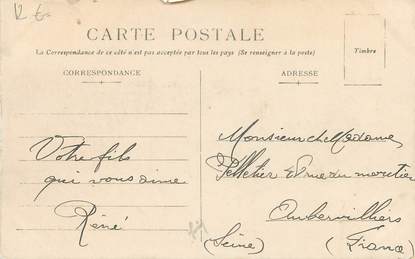 CARTE POSTALE
La Correspondance de ce côté n'est pas acceptée par tous les pays (Se renseigner à la poste)
Timbre
CORRESPONDANCE
ADRESSE
Votre fils
qui vous aime
Réné
Monsieur et Madame
Pelletier rue du
Aubervilliers
(Seine) (France)